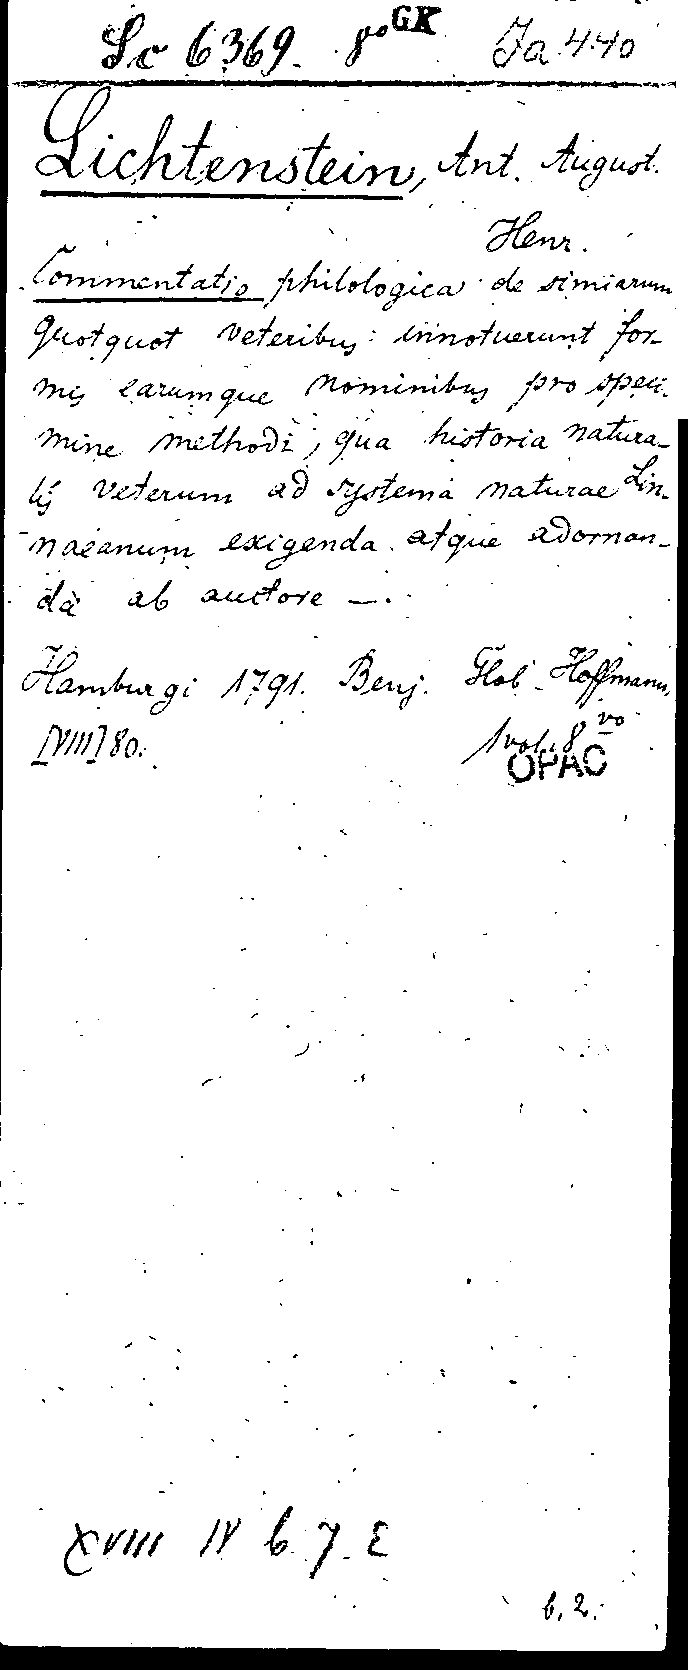 Sc 6369. 8° GK Ja 440
Lichtenstein, Ant. August.
Henr.
Commentatio philologica de simiarum
quotquot veteribus innotuerunt for-
mis earumque nominibus pro speci-
mine methodi, qua historia natura-
lis veterum ad systema naturae Lin-
naeanum exigenda atque adornan-
da ab auctore —.
Hamburgi 1791. Benj. Glob Hoffmann,
[VIII] 80. 1 vol. 8vo
OPAC
XVIII IV b. 7. ε
b. 2.